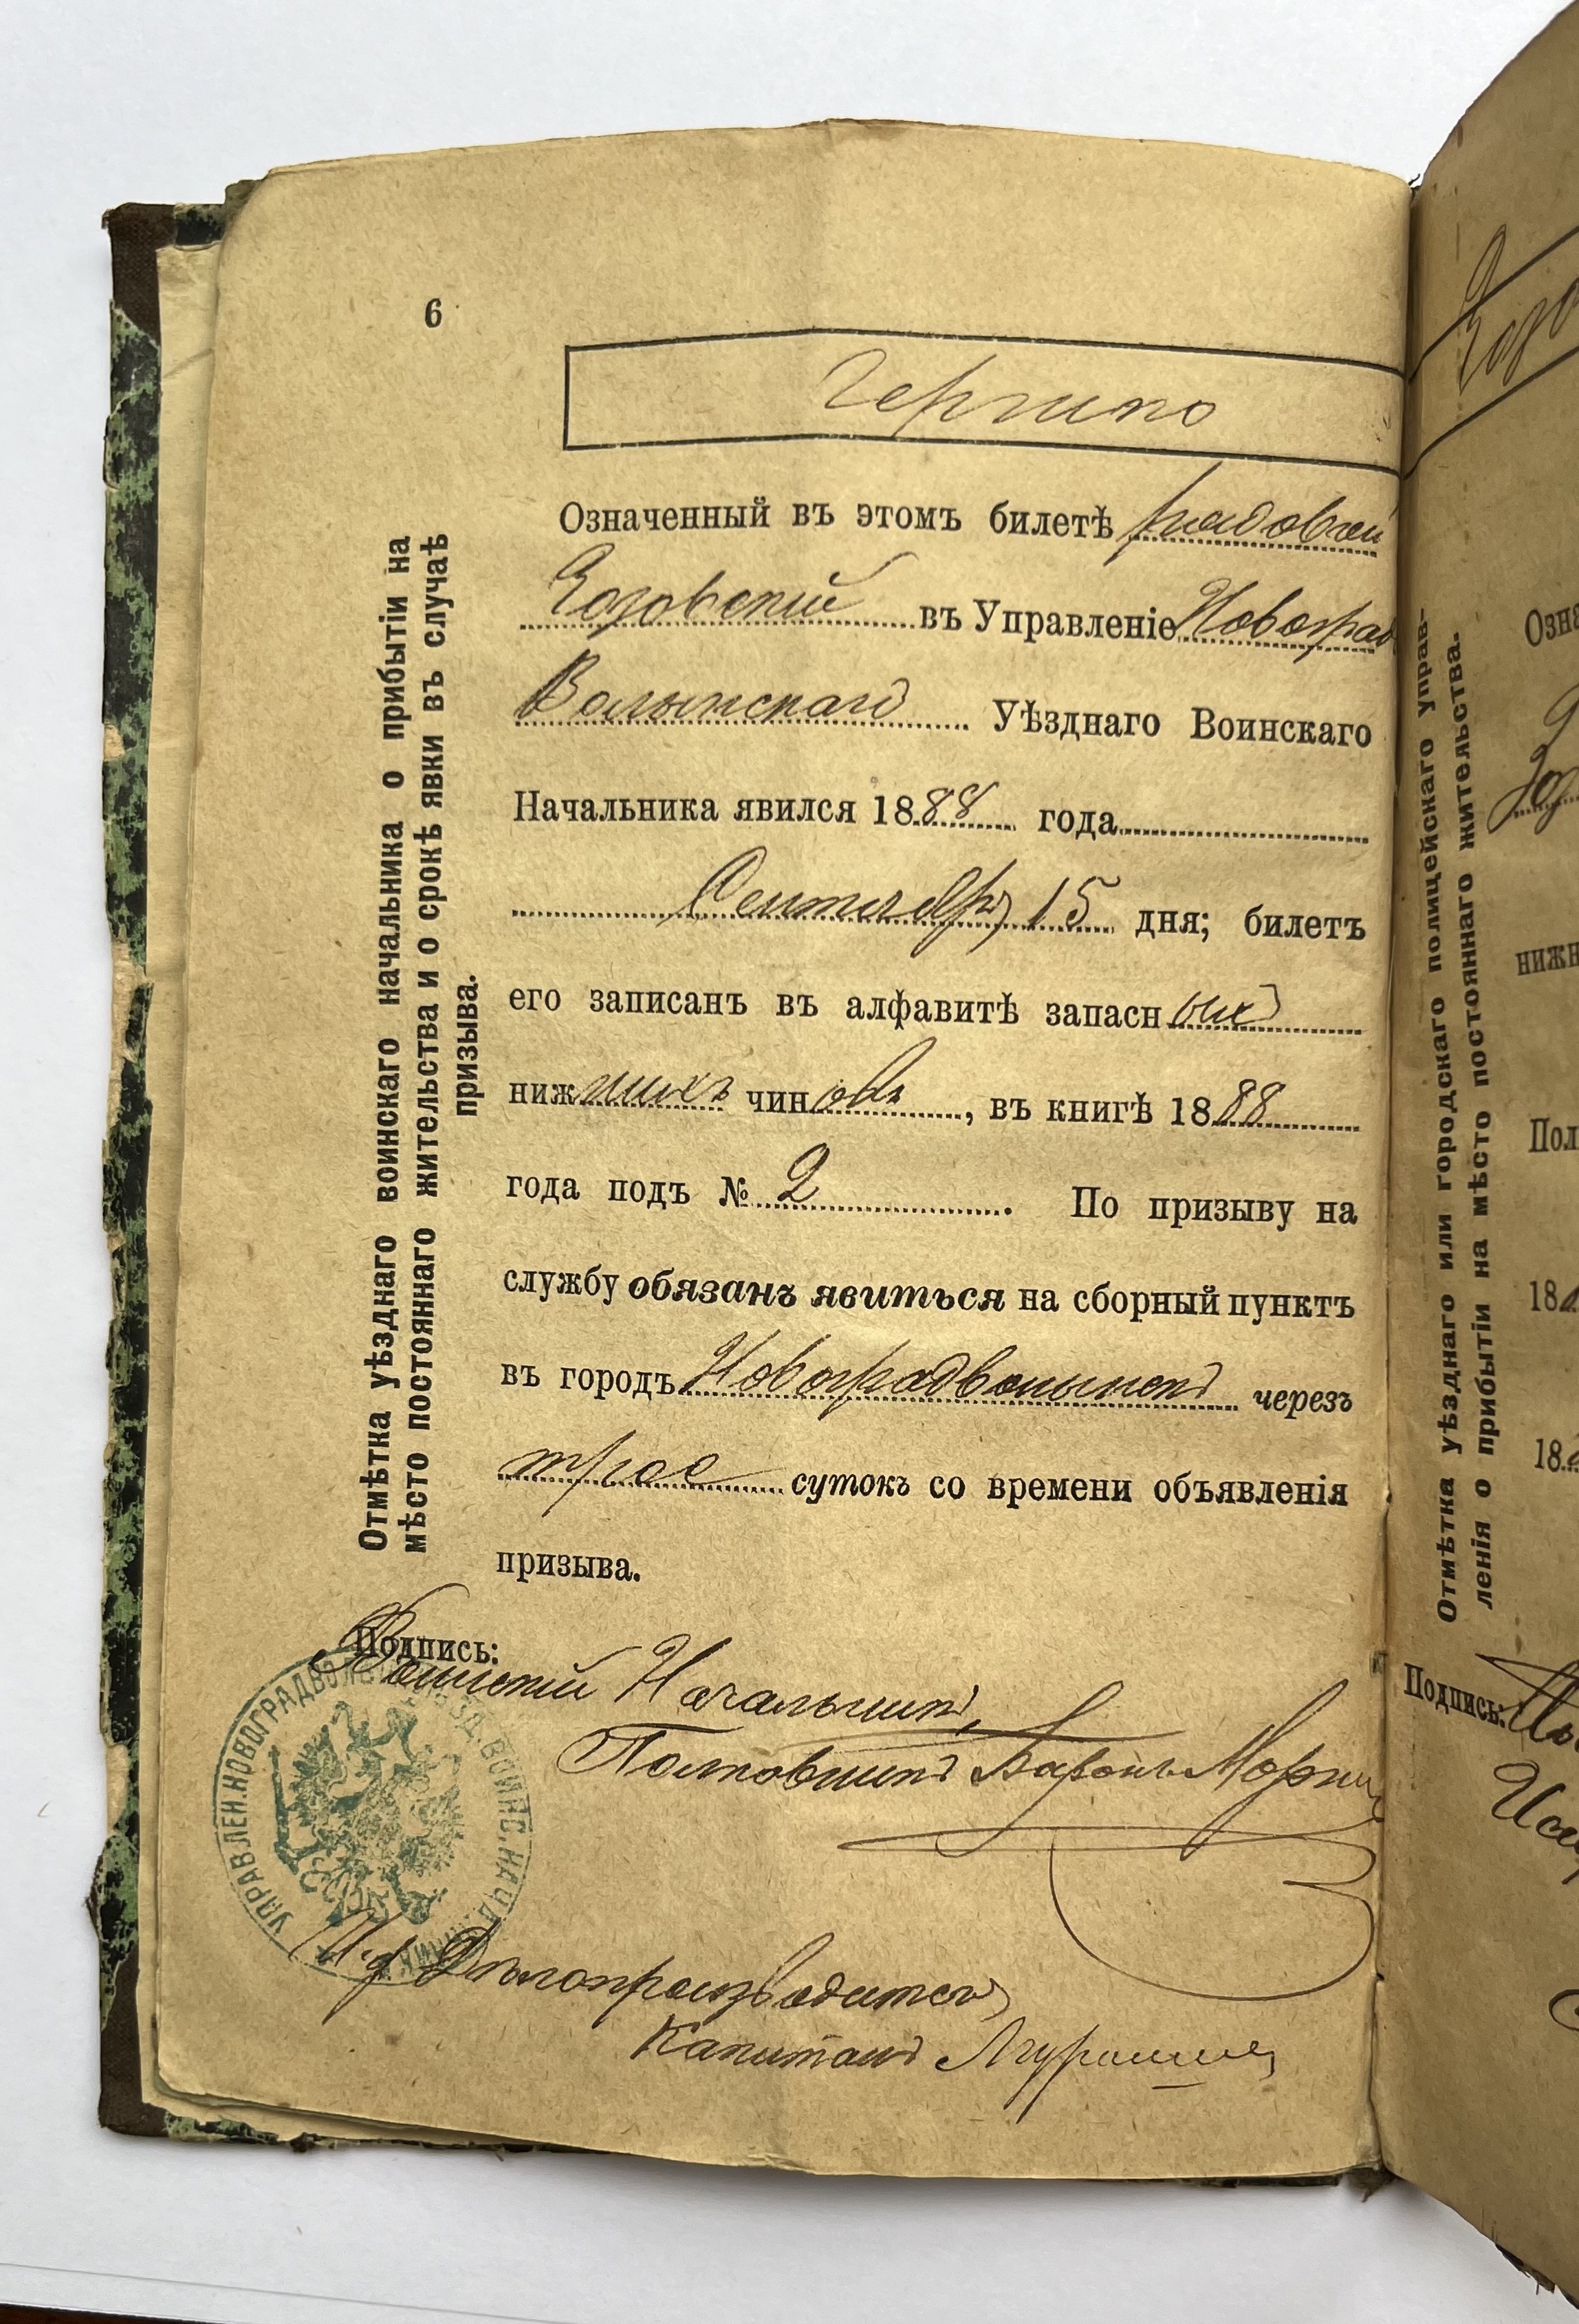 6
Отмѣтка уѣзднаго воинскаго начальника о прибытіи на
мѣсто постояннаго жительства и о срокѣ явки въ случаѣ
призыва.
Означенный въ этомъ билетѣ рядовой
въ Управленіе Новоград
Волынскаго Уѣзднаго Воинскаго
Начальника явился 1888 года
Сентября 15 дня; билетъ
его записанъ въ алфавитѣ запасныхъ
нижнихъ чиновъ, въ книгѣ 1888
года подъ № 2. По призыву на
службу обязанъ явиться на сборный пунктъ
въ городъ Новоградволынскъ черезъ
трое сутокъ со времени объявленія
призыва.
Подпись:
Воинскій Начальникъ,
Полковникъ Баронъ
УПРАВЛЕН. НОВОГРАДВОЛ УѢЗД. ВОИНС. НАЧАЛЬНИКА
И. д. Дѣлопроизводителя
Капитанъ
Отмѣтка уѣзднаго или городскаго полицейскаго управ-
ленія о прибытіи на мѣсто постояннаго жительства.
Озна
нижн
Пол
18
18
Подпись: